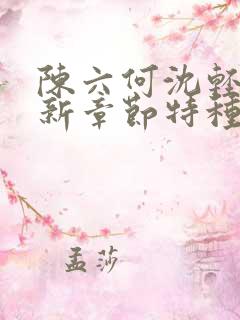 陳六何沈輕
新章節特種
孟莎